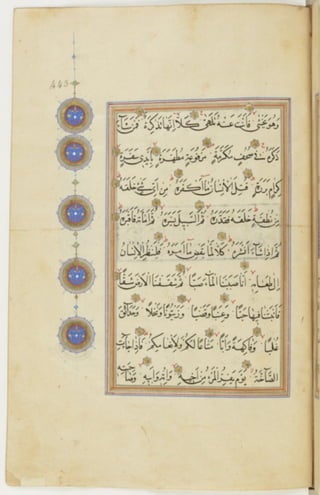 وَهُوَ يَخْشَىٰ فَأَنْتَ عَنْهُ تَلَهَّىٰ كَلَّا إِنَّهَا تَذْكِرَةٌ فَمَنْ شَاءَ
ذَكَرَهُ فِي صُحُفٍ مُكَرَّمَةٍ مَرْفُوعَةٍ مُطَهَّرَةٍ بِأَيْدِي سَفَرَةٍ
كِرَامٍ بَرَرَةٍ قُتِلَ الْإِنْسَانُ مَا أَكْفَرَهُ مِنْ أَيِّ شَيْءٍ خَلَقَهُ
مِنْ نُطْفَةٍ خَلَقَهُ فَقَدَّرَهُ ثُمَّ السَّبِيلَ يَسَّرَهُ ثُمَّ أَمَاتَهُ فَأَقْبَرَهُ
ثُمَّ إِذَا شَاءَ أَنْشَرَهُ كَلَّا لَمَّا يَقْضِ مَا أَمَرَهُ فَلْيَنْظُرِ الْإِنْسَانُ
إِلَىٰ طَعَامِهِ أَنَّا صَبَبْنَا الْمَاءَ صَبًّا ثُمَّ شَقَقْنَا الْأَرْضَ شَقًّا
فَأَنْبَتْنَا فِيهَا حَبًّا وَعِنَبًا وَقَضْبًا وَزَيْتُونًا وَنَخْلًا وَحَدَائِقَ
غُلْبًا وَفَاكِهَةً وَأَبًّا مَتَاعًا لَكُمْ وَلِأَنْعَامِكُمْ فَإِذَا جَاءَتِ
الصَّاخَّةُ يَوْمَ يَفِرُّ الْمَرْءُ مِنْ أَخِيهِ وَأُمِّهِ وَأَبِيهِ وَصَاحِبَتِهِ